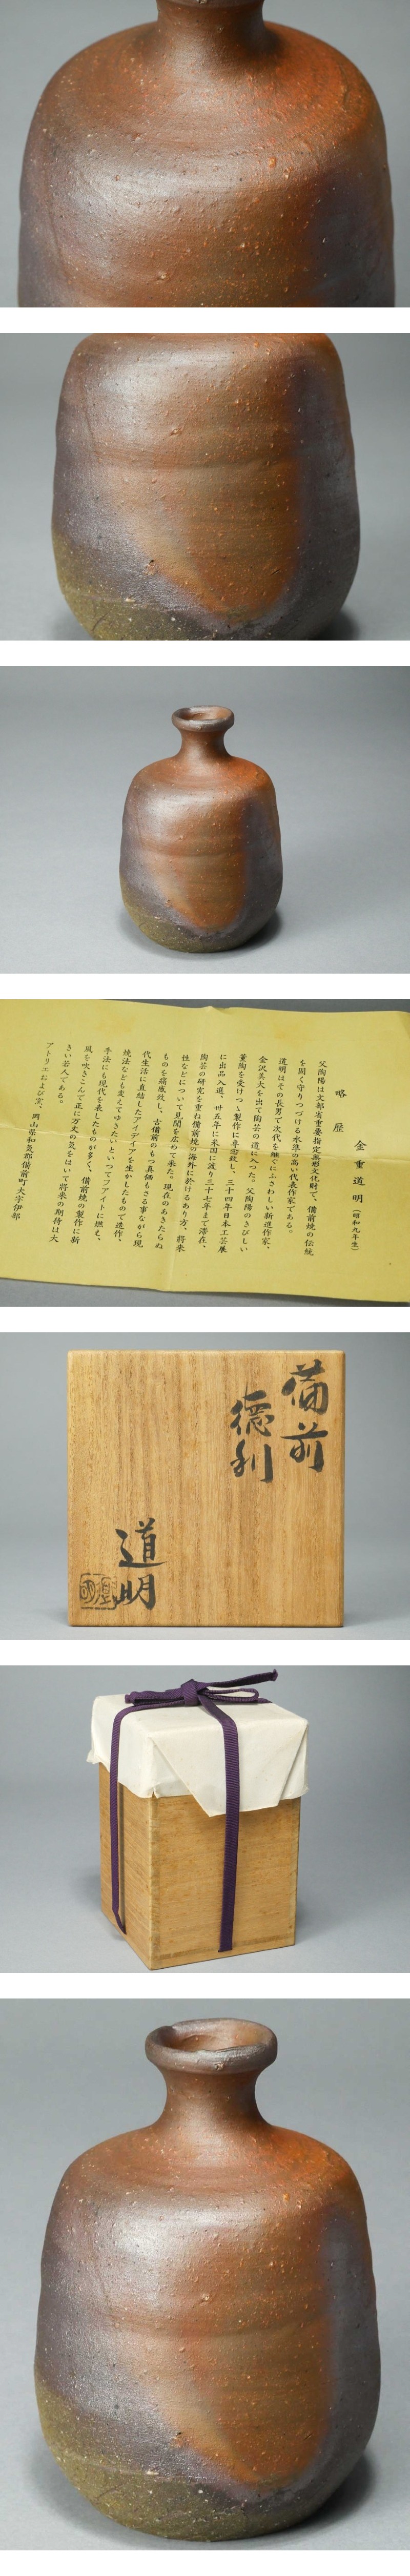 略歴
金重道明（昭和九年生）
父陶陽は文部省重要指定無形文化財で、備前焼の伝統
を固く守りつづける水準の高い代表作家である。
道明はその長男で次代を継ぐにふさわしい新進作家、
金沢美大を出て陶芸の道に入った。父陶陽のきびしい
薫陶を受けつゝ製作に専念致し、三十四年日本工芸展
に出品入選、卅五年に米国に渡り三十七年まで滞在、
陶芸の研究を重ね備前焼の海外に於けるあり方、将来
性などについて見聞を広めて来た。現在のあきたらぬ
ものを痛感致し、古備前のもつ真価もさる事ながら現
代生活に直結したアイデイアを生かしたもので造作、
焼法なども変えてゆきたいといつてフアイトに燃え、
手法にも現代を表したものが多く、備前焼の製作に新
風を吹きこんで正に万丈の気をはいて将来の期待は大
きい若人である。
アトリエおよび窯 岡山県和気郡備前町大字伊部
備前
徳利
道明